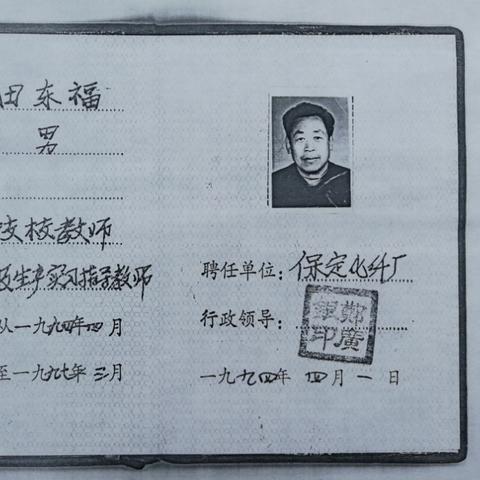 田东福
男
技校教师
级生产实习指导教师
从一九九四年四月
至一九九七年三月
聘任单位：保定化纤厂
行政领导：
鄭廣印
一九九四年 四月 一 日